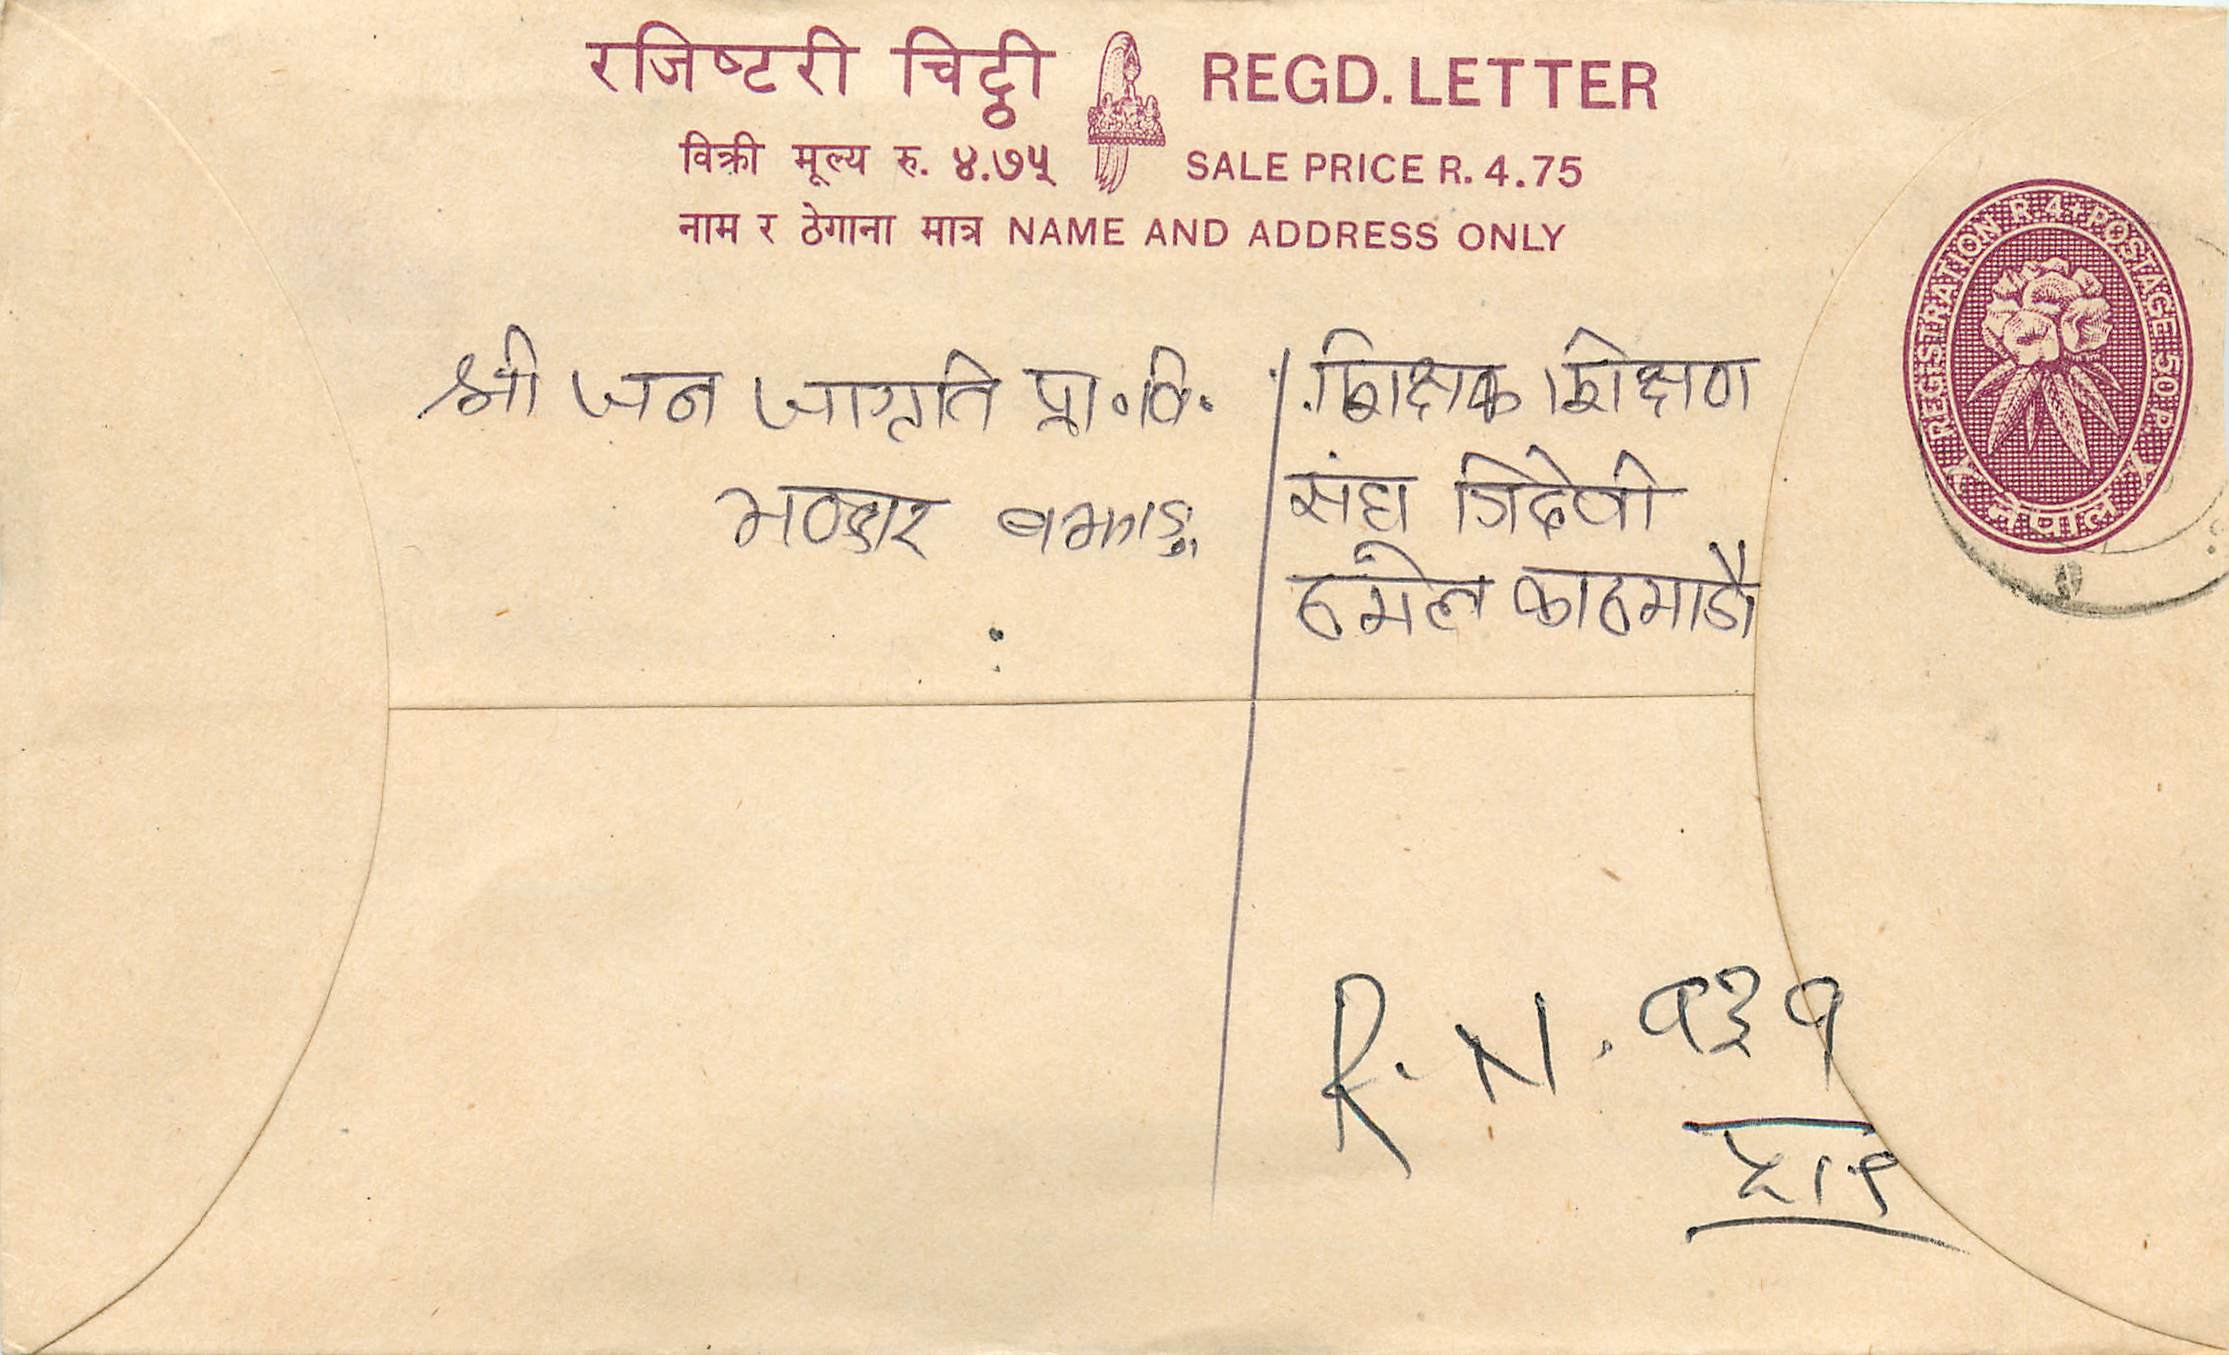 रजिष्टरी चिट्ठी REGD. LETTER
विक्री मूल्य रु. ४.७५ SALE PRICE R. 4.75
नाम र ठेगाना मात्र NAME AND ADDRESS ONLY
REGISTRATION R.4+POSTAGE 50 P.
नेपाल
श्री जन जागृति प्रा॰वि॰
भण्डार बझाङ्ग
शिक्षक शिक्षण
संघ त्रिदेवी
ठमेल काठमाडौ
R. N. १३१